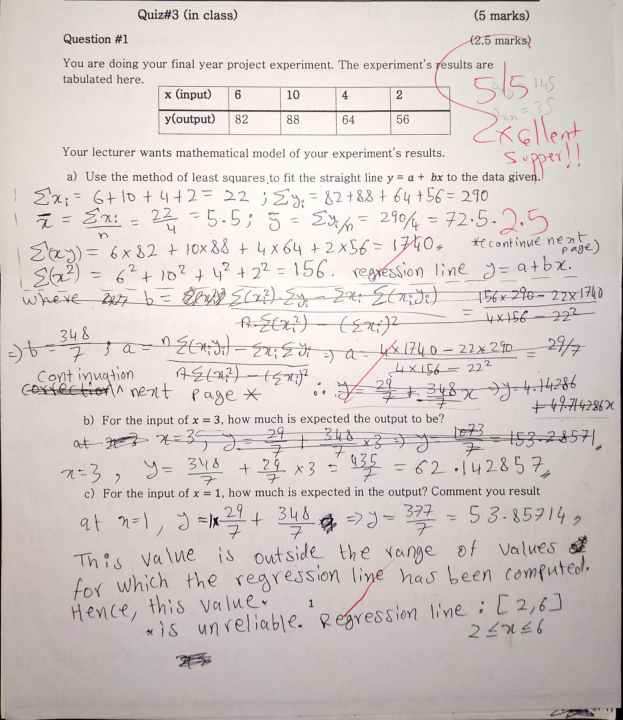 Quiz#3 (in class) (5 marks)
Question #1 (2.5 marks)
You are doing your final year project experiment. The experiment's results are
tabulated here.
x (input) 6 10 4 2
y(output) 82 88 64 56
5/5
Excellent
Supper!!
Your lecturer wants mathematical model of your experiment's results.
a) Use the method of least squares to fit the straight line y = a + bx to the data given.
Σxᵢ = 6+10+4+2 = 22 ; Σyᵢ = 82+88+64+56 = 290
x̄ = Σxᵢ/n = 22/4 = 5.5 ; ȳ = Σyᵢ/n = 290/4 = 72.5. 2.5
Σ(xy) = 6×82 + 10×88 + 4×64 + 2×56 = 1740. *(continue next page)
Σ(x²) = 6² + 10² + 4² + 2² = 156. regression line y = a+bx.
where b = Σ(xᵢ²) Σyᵢ − Σxᵢ Σ(xᵢyᵢ) / n Σ(xᵢ²) − (Σxᵢ)² = 156×290 − 22×1740 / 4×156 − 22²
⇒ b = 348/7 ; a = n Σ(xᵢyᵢ) − Σxᵢ Σyᵢ / n Σ(xᵢ²) − (Σxᵢ)² ⇒ a = 4×1740 − 22×290 / 4×156 − 22² = 29/7
Continuation
correction ^ next page * ∴ y = 29/7 + 348/7 x ⇒ y = 4.14286
+ 49.714286x
b) For the input of x = 3, how much is expected the output to be?
at x=3, y = 29/7 + 348/7 ×3 ⇒ y = 1073/7 = 153.28571
x=3 , y = 348/7 + 29/7 ×3 = 435/7 = 62.142857
c) For the input of x = 1, how much is expected in the output? Comment you result
at x=1, y = 1× 29/7 + 348/7 ⇒ y = 377/7 = 53.85714
This value is outside the range of values
for which the regression line has been computed.
Hence, this value
* is unreliable. 1 Regression line : [2,6]
2 ≤ x ≤ 6